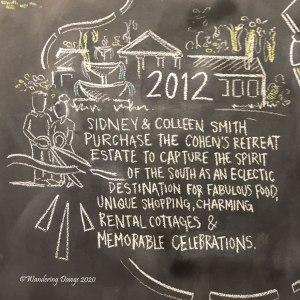 2012
SIDNEY & COLLEEN SMITH
PURCHASE THE COHEN'S RETREAT
ESTATE TO CAPTURE THE SPIRIT
OF THE SOUTH AS AN ECLECTIC
DESTINATION FOR FABULOUS FOOD,
UNIQUE SHOPPING, CHARMING
RENTAL COTTAGES &
MEMORABLE CELEBRATIONS.
©Wandering Dawgs 2020